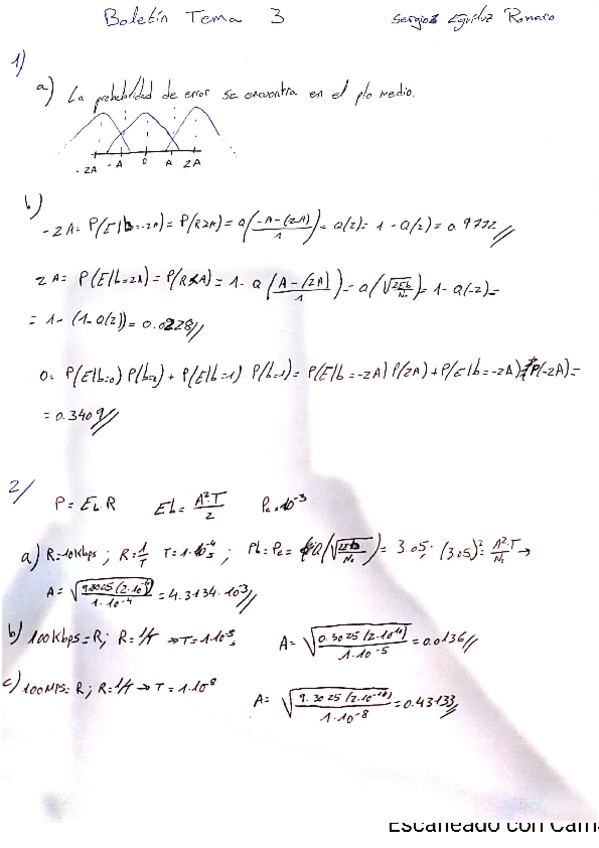 Boletín Tema 3
Sergio Eguiluz Romero
1)
a) La probabilidad de error se encuentra en el pto medio.
-2A -A 0 A 2A
b)
-2A = P(E|b=-2A) = P(R≥A) = Q((-A-(2A))/1) = Q(2) = 1-Q(2) = 0.9772//
2A = P(E|b=2A) = P(R<A) = 1-Q((A-(2A))/1) = Q(√(2Eb/No)) = 1-Q(-2) =
= 1-(1-Q(2)) = 0.0228//
0 = P(E|b=0) P(b=0) + P(E|b=1) · P(b=1) = P(E|b=-2A) P(2A) + P(E|b=-2A) P(-2A) =
= 0.3409//
2/
P = Eb R Eb = A²·T/2 Pe = 10⁻³
a) R=10Kbps; R=1/T T=1·10⁻⁴s; Pb=Pe= Q(√(2Eb/No)) = 3.05; (3.05)² = A²·T/No →
A = √(9.3025(2·10⁻⁴)/1·10⁻⁴) = 4.3134·10⁻³//
b) 100Kbps=R; R=1/T → T=1·10⁻⁵ A = √(0.3025(2·10⁻¹¹)/1·10⁻⁵) = 0.0136//
c) 100MPS=R; R=1/T → T=1·10⁸ A = √(9.3025(2·10⁻¹⁰)/1·10⁻⁸) = 0.43133//
Escaneado con Cam